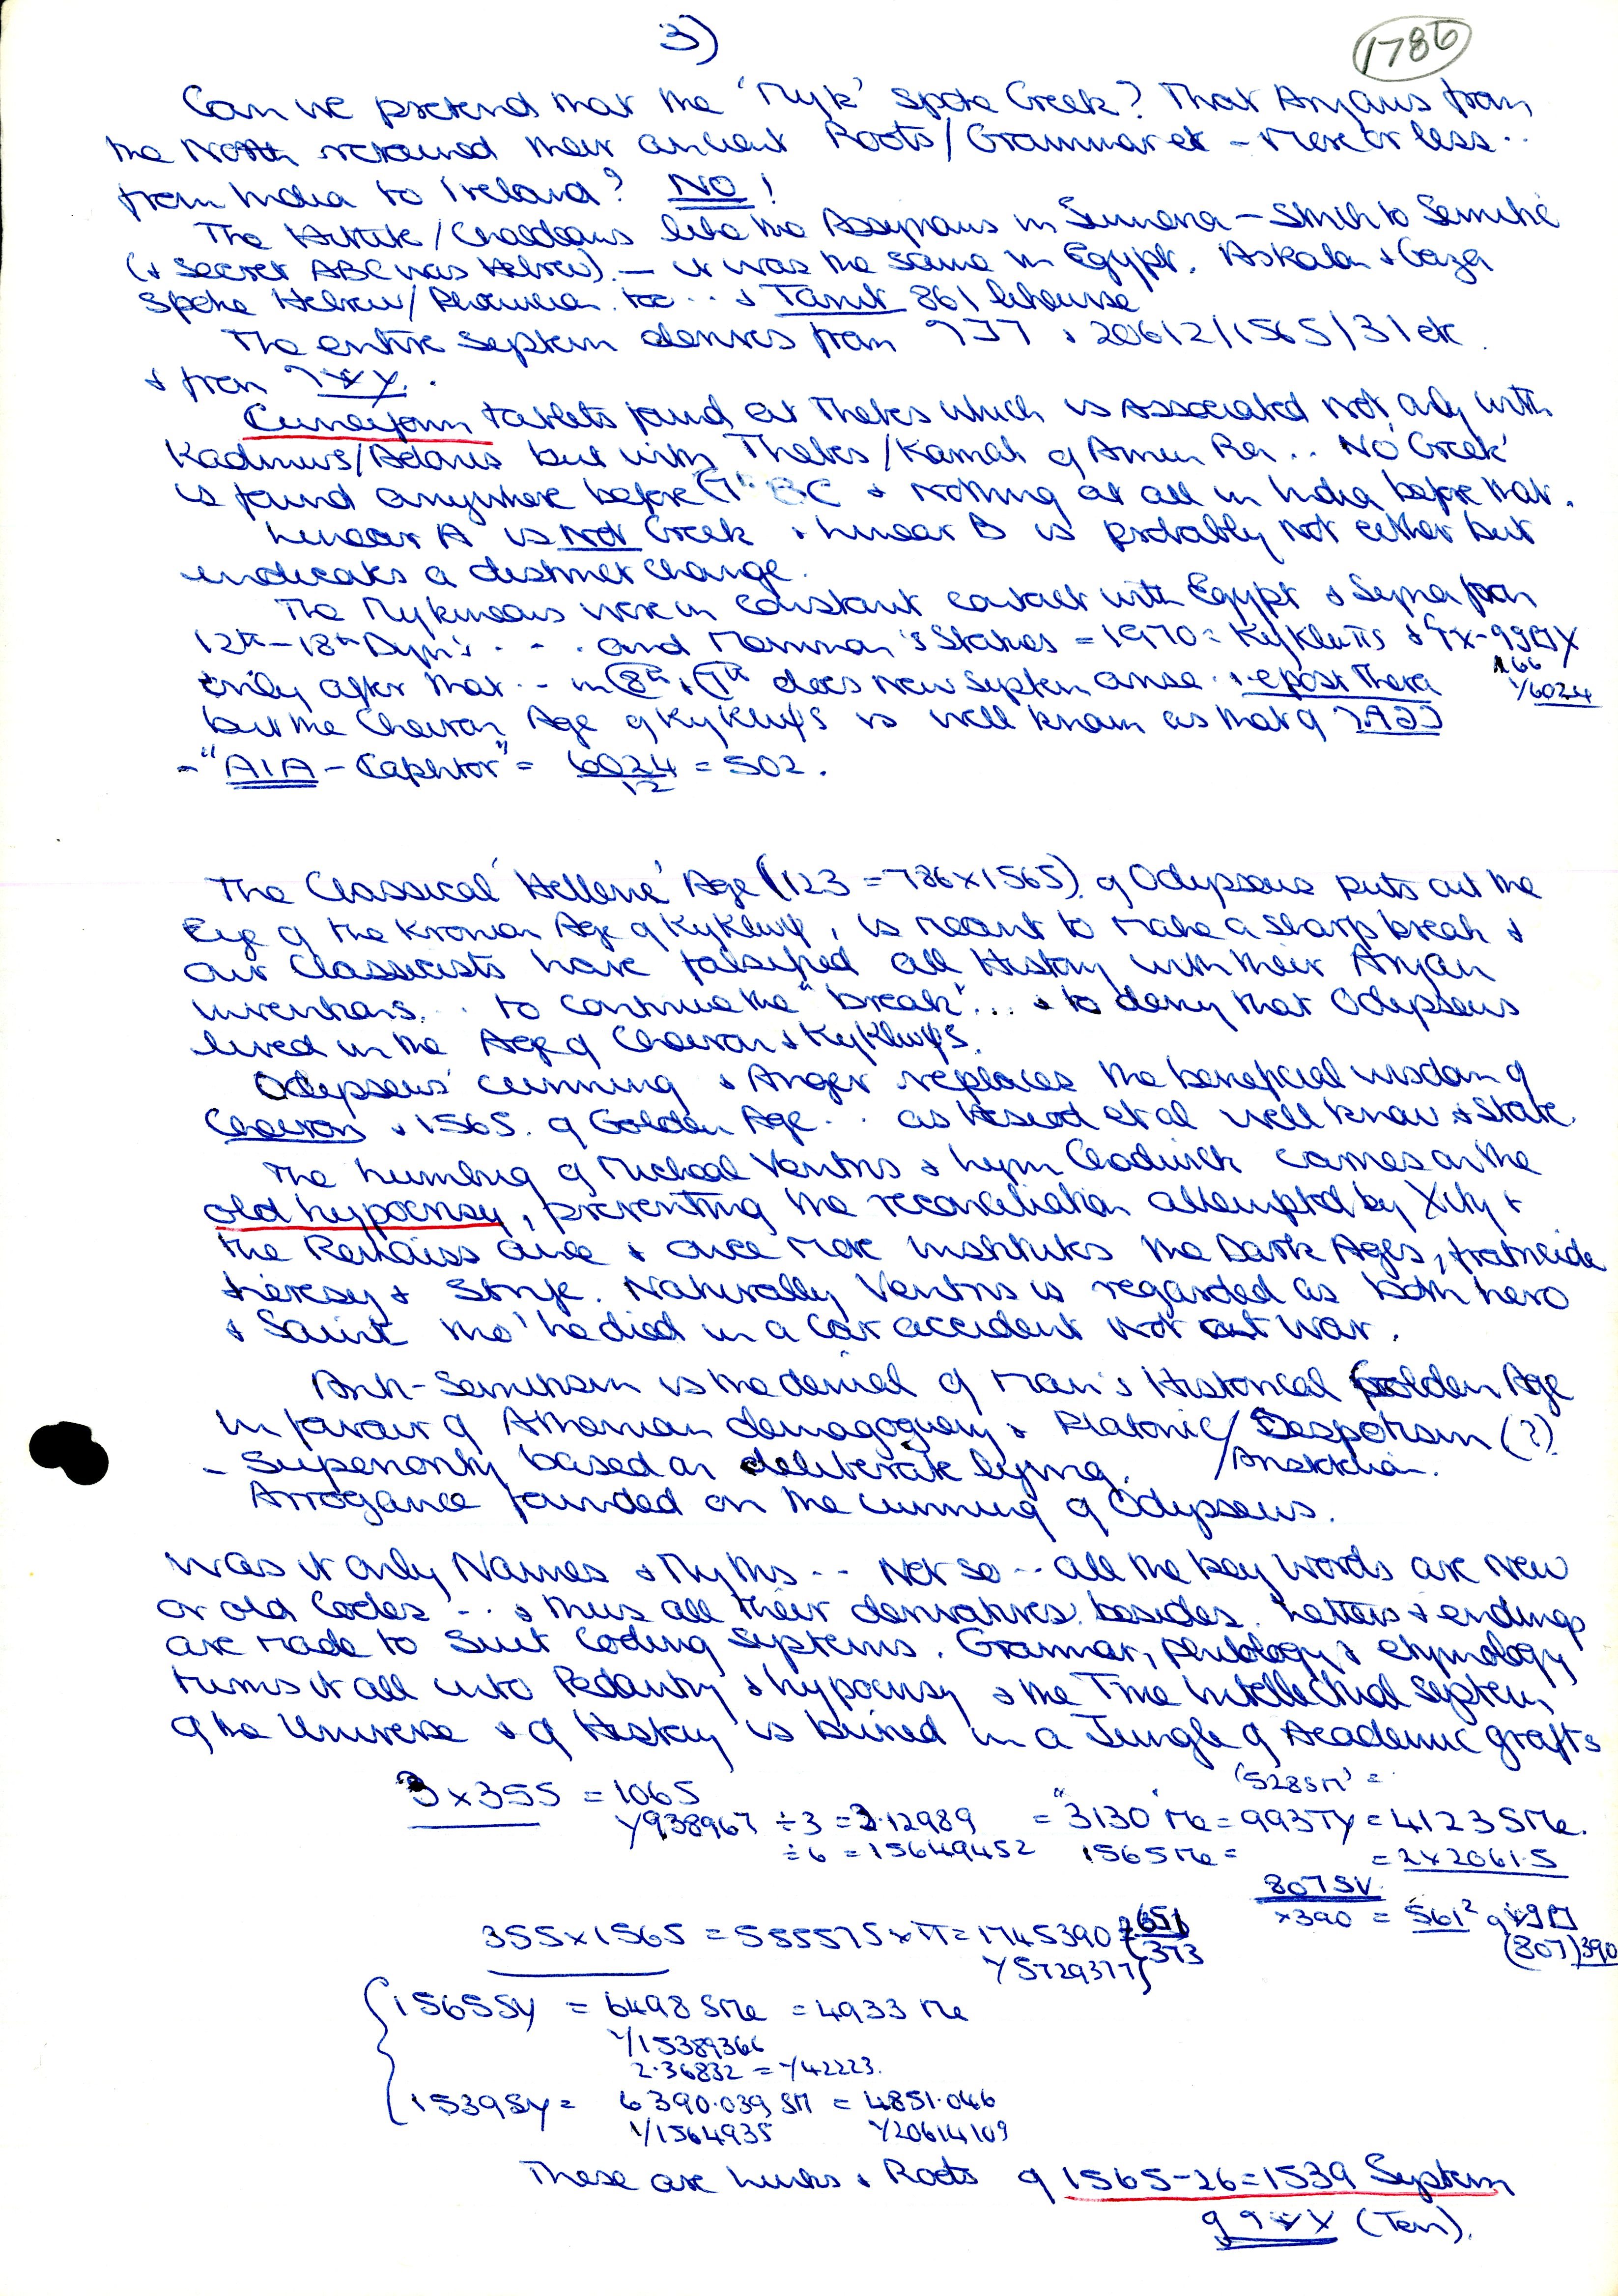 3)
1786
Can we pretend that the 'Myk' spoke Greek? That Aryans from
the North retained their ancient Roots/Grammar etc - More or less..
from India to Ireland? NO!
The Hittite/Chaldeans like the Assyrians in Sumeria - Stick to Semitic
(+ Secret ABC was Hebrew) - it was the same in Egypt. Askalon + Gaza
spoke Hebrew/Phoenician too .. + Tanit 861 likewise
The entire System derives from 20612/1565/31 etc.
+ from
Cuneiform tablets found at Thebes which is Associated not only with
Kadmus/Adonis but with Thebes/Karnak of Amun Ra .. No 'Greek'
is found anywhere before 7th BC + Nothing at all in India before that.
Linear A is Not Greek + Linear B is probably Not either but
indicates a distinct change.
The Mykineans were in Constant contact with Egypt + Syria from
12th-18th Dyn's . - . and Memnon's Statues = 1970 = Kyklwps +
only after that .. in 8th + 7th does New System arise . + post Thera
1/6024
but the Cheiron Age of Kyklwps is well known as that of
- "AIA - Caphtor" = 6024/12 = 502.
The Classical 'Hellene' Age (123 = 786x1565) of Odysseus puts out the
Eye of the Kronian Age of Kyklwps, is meant to make a sharp break +
our Classicists have falsified all History with their Aryan
inventions. . to continue the "break"... + to deny that Odysseus
lived in the Age of Cheiron + Kyklwps.
Odysseus' cunning + Anger replaces the beneficial wisdom of
Cheiron + 1565. of Golden Age .. as Hesiod et al well know + State.
The humbug of Micheal Ventris + Chadwick carries on the
old hypocrisy, preventing the reconciliation attempted by Xity +
the Renaissance + once more institutes the Dark Ages, fratricide
heresy + Strife. Naturally Ventris is regarded as both hero
+ Saint tho' he died in a Car accident not at War.
Anti-Semitism is the denial of Man's Historical Golden Age
in favour of Athenian demagoguery + Platonic/Despotism (?)
- Superiority based on deliberate lying.
Arrogance founded on the cunning of Odysseus.
Was it only Names + Myths .. Not so .. all the key words are New
or old Codes .. + thus all their derivatives besides. Letters + endings
are made to Suit Coding Systems. Grammar, philology + etymology
turns it all into Pedantry + hypocrisy + the True Intellectual System
of the Universe + of History is buried in a Jungle of Academic grafts
3 x 355 = 1065
1/938967 ÷3 = 3.12989 = "3130" Me = 993TY = 4123SMe.
(528SM' =
÷6 = 15649452 1565Me = = 2x2061.5
807SV
x390 = 561²
(807)390
355x1565 = 555575 x π = 1745390
1/5729377
1565SY = 6498SMe = 4933 Me
1/15389366
2.36832 = 1/42223.
1539SY = 6390.039 SM = 4851.046
1/1564935 1/20614109
These are Links + Roots of 1565-26=1539 System
(Ten).